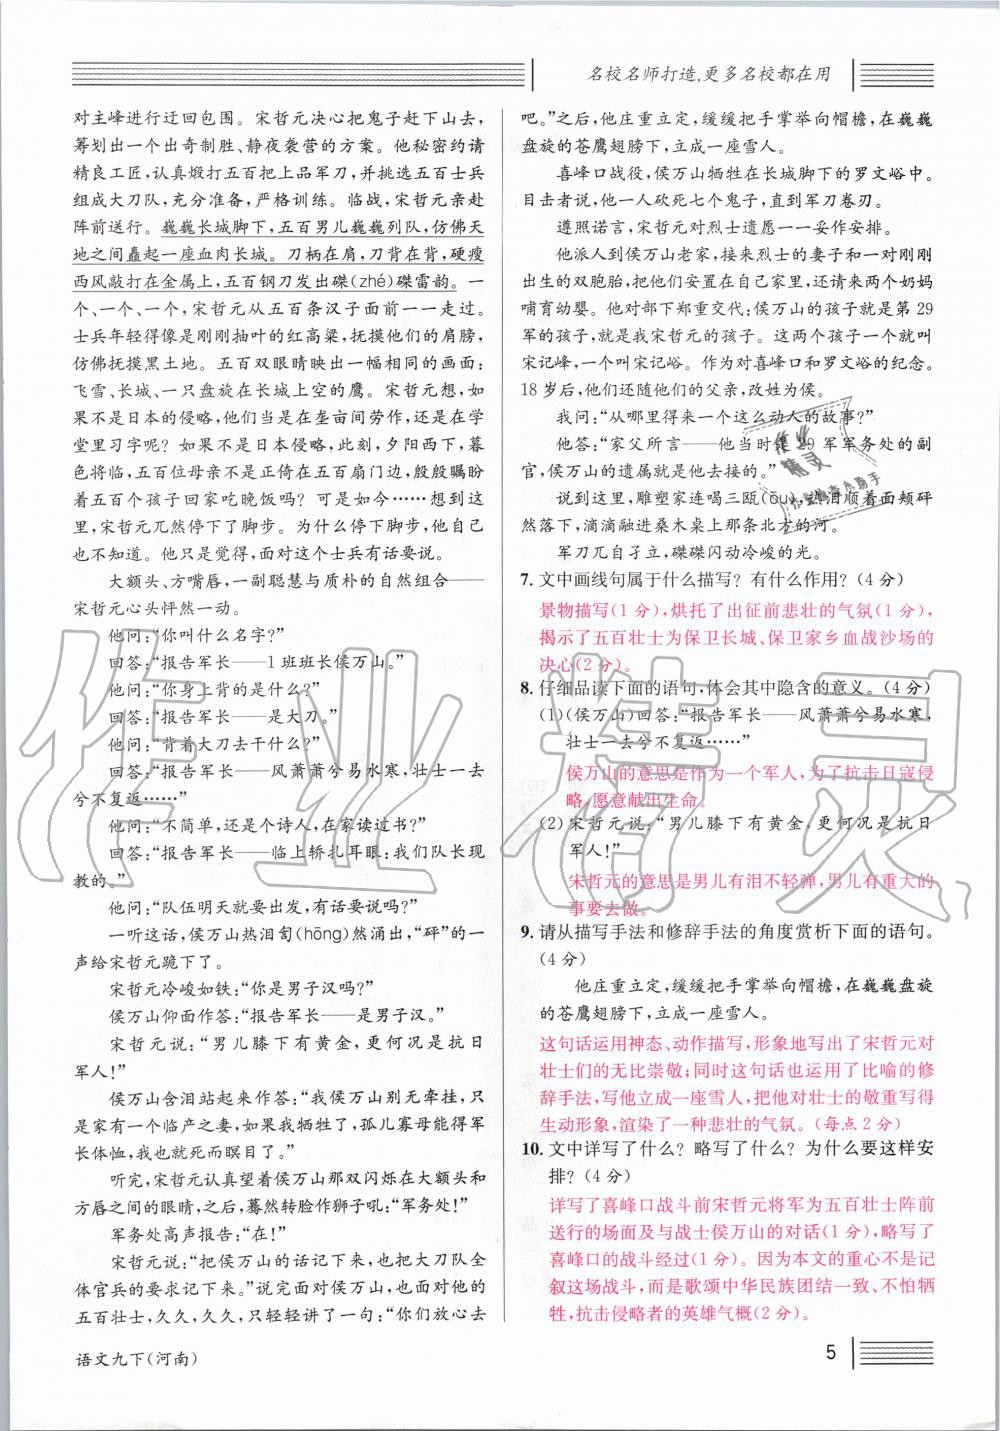 名校名师打造,更多名校都在用
对主峰进行迂回包围。宋哲元决心把鬼子赶下山去,
筹划出一个出奇制胜、静夜袭营的方案。他秘密约请
精良工匠,认真煅打五百把上品军刀,并挑选五百士兵
组成大刀队,充分准备,严格训练。临战,宋哲元亲赴
阵前送行。巍巍长城脚下,五百男儿巍巍列队,仿佛天
地之间矗起一座血肉长城。刀柄在肩,刀背在背,硬瘦
西风敲打在金属上,五百钢刀发出磔(zhé)磔雷韵。一
个、一个、一个,宋哲元从五百条汉子面前一一走过。
士兵年轻得像是刚刚抽叶的红高粱,抚摸他们的肩膀,
仿佛抚摸黑土地。五百双眼睛映出一幅相同的画面:
飞雪、长城、一只盘旋在长城上空的鹰。宋哲元想,如
果不是日本的侵略,他们应当是在垄亩间劳作,还是在学
堂里习字呢?如果不是日本侵略,此刻,夕阳西下,暮
色将临,五百位母亲不是正倚在五百扇门边,殷殷呼唤
五百个孩子回家吃晚饭吗?可如今……想到这里,
宋哲元兀然停下了脚步。为什么停下脚步,他自己
也不知道。他只是觉得,面对这个士兵有话要说。
大额头、方嘴唇,一副聪慧与质朴的自然组合——
宋哲元心头怦然一动。
他问:“你叫什么名字?”
回答:“报告军长——1班班长侯万山。”
他问:“你身上背的是什么?”
回答:“报告军长——是大刀。”
他问:“背着大刀去干什么?”
回答:“报告军长——风萧萧兮易水寒,壮士一去
兮不复返……”
他问:“不简单,还是个诗人,在家读过书?”
回答:“报告军长——临上轿扎耳眼:我们队长现
教的。”
他问:“队伍明天就要出发,有话要说吗?”
一听这话,侯万山热泪訇(hōng)然涌出,“砰”的一
声给宋哲元跪下了。
宋哲元冷峻如铁:“你是男子汉吗?”
侯万山仰面作答:“报告军长——是男子汉。”
宋哲元说:“男儿膝下有黄金,更何况是抗日
军人!”
侯万山含泪站起来作答:“我侯万山别无牵挂,
家中有一个临产之妻,如果我牺牲了,孤儿寡母能得军
长体恤,我也就瞑目了。”
听完,宋哲元认真望着侯万山那双闪烁在大额头和
方唇之间的眼睛,之后,蓦然转脸作狮子吼:“军务处!”
军务处高声报告:“在!”
宋哲元说:“把侯万山的话记下来,把大刀队全
体官兵的要求记下来。”说完面对侯万山,面对他的
五百壮士,久久,久久,只轻轻讲了一句:“你们放心去
吧。”之后,他庄重立定,缓缓把手掌举向帽檐,在巍巍
盘旋的苍鹰翅膀下,立成一座雪人。
喜峰口战役,侯万山牺牲在长城脚下的罗文峪中。
目击者说,他一人砍死七个鬼子,直到军刀卷刃。
遵照诺言,宋哲元对烈士遗愿一一妥作安排。
他派人到侯万山老家,接来烈士的妻子和一对刚刚
出生的双胞胎,把他们安置在自己家里,还请了两个奶妈
哺育幼婴。他对部下郑重交代:侯万山的孩子就是第29
军的孩子,就是我宋哲元的孩子。这两个孩子一个就叫
宋记峰,一个就叫宋记峪。作为对喜峰口和罗文峪的纪念。
18岁后,他们还随他们的父亲,改姓为侯。
我问:“从哪里得来一个这么动人的故事?”
他答:“家父所言——他当时是29军军务处的副
官,侯万山的遗属就是他去接的。”
说到这里,雕塑家连喝三瓯(ōu),泪水沿着面颊砰
然落下,滴滴融进桑木桌上那条北方的河。
军刀兀自孑立,磔磔闪动冷峻的光。
7. 文中画线句属于什么描写?有什么作用?(4分)
景物描写(1分),烘托了出征前悲壮的气氛(1分),
揭示了五百壮士为保卫长城、保卫家乡血战沙场的
决心(2分)。
8. 仔细品读下面的语句,体会其中隐含的意义。(4分)
(1)(侯万山)回答:“报告军长——风萧萧兮易水寒,
壮士一去兮不复返……”
侯万山的意思是作为一个军人,为了抗击日寇侵
略,愿意献出生命。
(2)宋哲元说:“男儿膝下有黄金,更何况是抗日
军人!”
宋哲元的意思是男儿有泪不轻弹,男儿有重大的
事要去做。
9. 请从描写手法和修辞手法的角度赏析下面的语句。
(4分)
他庄重立定,缓缓把手掌举向帽檐,在巍巍盘旋
的苍鹰翅膀下,立成一座雪人。
这句话运用神态、动作描写,形象地写出了宋哲元对
壮士们的无比崇敬;同时这句话也运用了比喻的修
辞手法,写他立成一座雪人,把他对壮士的敬重写得
生动形象,渲染了一种悲壮的气氛。(每点2分)
10. 文中详写了什么?略写了什么?为什么要这样安
排?(4分)
详写了喜峰口战斗前宋哲元将军为五百壮士阵前
送行的场面及与战士侯万山的对话(1分),略写了
喜峰口的战斗经过(1分)。因为本文的重心不是记
叙这场战斗,而是歌颂中华民族团结一致、不怕牺
牲,抗击侵略者的英雄气概(2分)。
语文九下(河南)
5
作业精灵
作业精灵